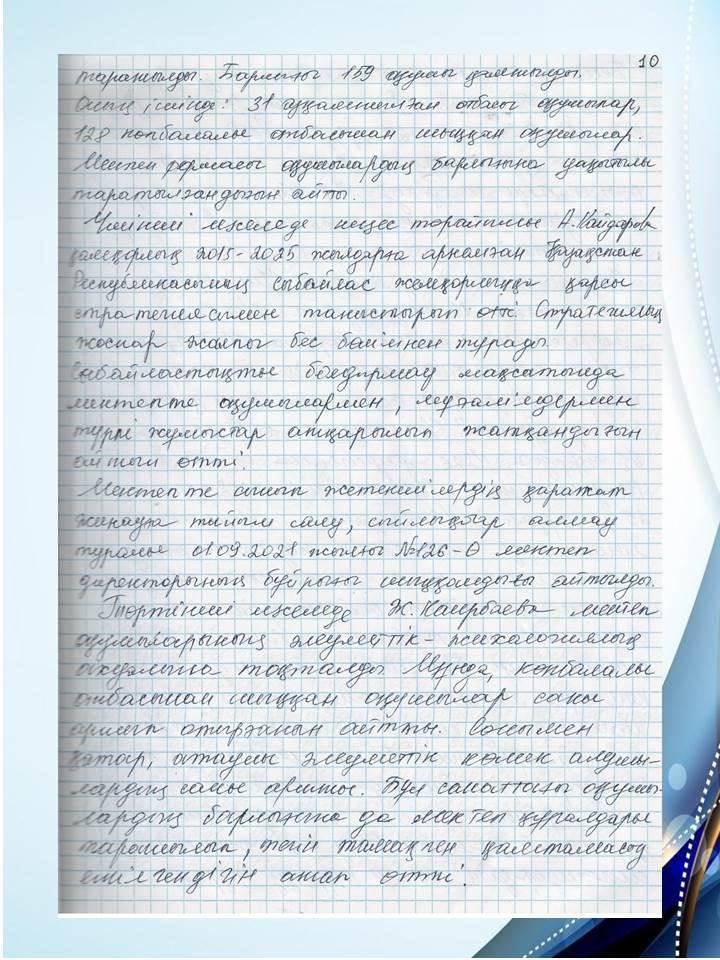 10
таратылды. Барлығы 159 оқушы қамтылды.
Оның ішінде: 31 аз қамтылған отбасы оқушылар,
128 көпбалалы отбасынан шыққан оқушылар.
Мектеп формасы оқушылардың барлығына уақытылы
таратылғандығын айтты.
Үшінші мәселеде кеңес төрайымы А.Кайдарова
2015-2025 жылдарға арналған Қазақстан
Республикасының сыбайлас жемқорлыққа қарсы
стратегиясымен таныстырып өтті. Стратегиялық
жоспар жалпы бес бөлімнен тұрады.
Сыбайластықты болдырмау мақсатында
мектепте оқушылармен, мұғалімдермен
түрлі жұмыстар атқарылып жатқандығын
айтып өтті.
Мектепте сынып жетекшілердің қаражат
жинауға тыйым салу, сыйлықтар алмау
туралы 01.09.2021 жылғы №126-Ө мектеп
директорының бұйрығы шыққандығы айтылды.
Төртінші мәселеде Ж.Каирбаева мектеп
оқушыларының әлеуметтік-психологиялық
ахуалына тоқталды. Мұнда, көпбалалы
отбасынан шыққан оқушылар саны
артып отырғанын айтты. Сонымен
қатар, атаулы әлеуметтік көмек алушы-
лардың саны артты. Бұл санаттағы оқушы-
лардың барлығына да мектеп құралдары
таратылып, тегін тамақпен қамтамасыз
етілгендігін атап өтті.